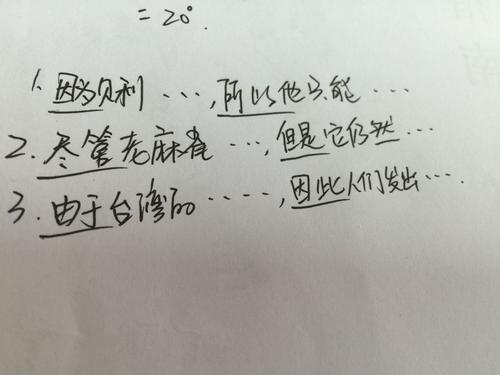 = 20°.
1. 因为贝利 ···, 所以他只能 ···
2. 尽管老麻雀 ···, 但是它仍然 ···
3. 由于台湾的 ····, 因此人们发出 ···.